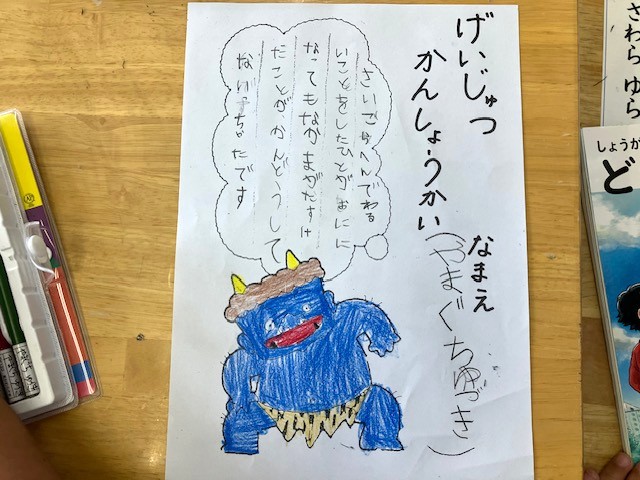 さわら ゆら
しょうが
ど
げいじゅつ
かんしょうかい
なまえ(やまぐちゆづき)
さいごらへんでわる
いことをしたひとがおにに
なってもなかまがたすけ
たことがかんどうして
ないちゃたです